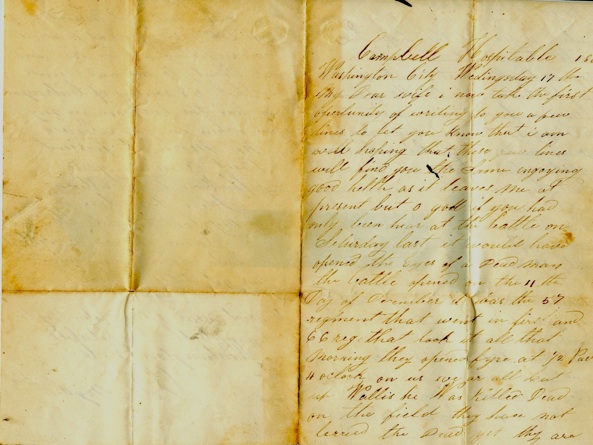 Campbell Hospitable 18
Washington City Wedingsday 17 the
My Dear wife i now take the first
opertunity of writing to you a few
lines to let you know that i am
well hoping that these few lines
will find you the same enjoying
good helth as it leaves me at
present but O god if you had
only been hear at the battle on
Saturday last it would have
opened the eyes of a Dead man
the battle opened on the 11 th
Day of December it was the 57
regiment that went in first and
66 reg that took it all that
morning they opened fyre at
4 oclock on us we are all cut
up Wallis he Was Killed Dead
on the field they have not
buried the Dead yet they are